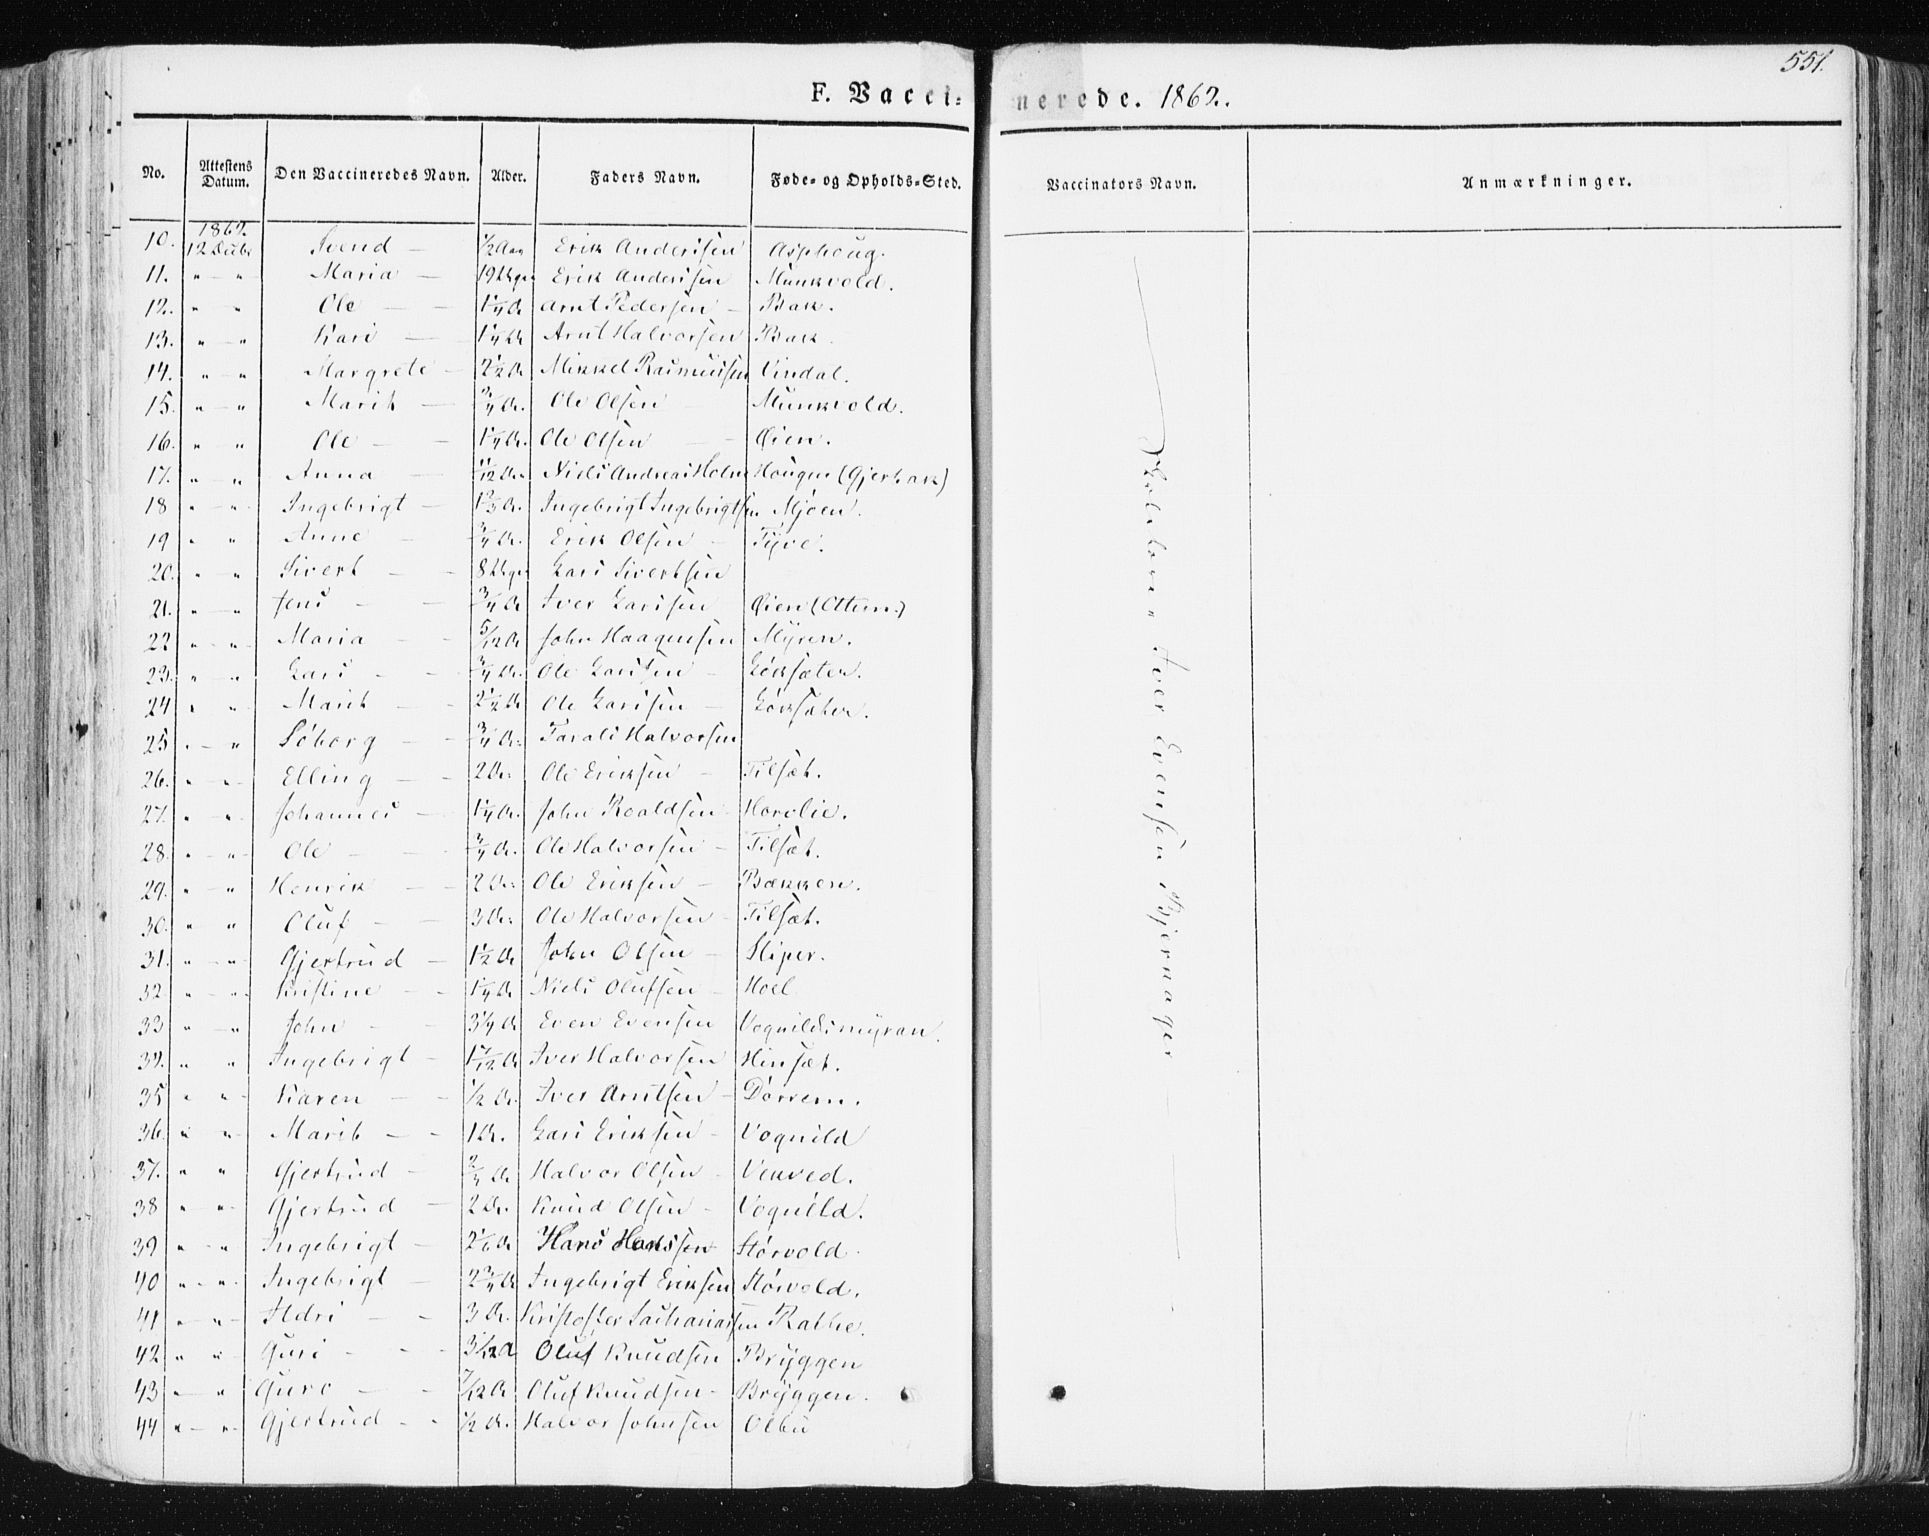 551.
F. Vacci- nerede. 1862.
No. Attestens Datum. Den Vaccineredes Navn. Alder. Faders Navn. Føde- og Opholds-Sted. Vaccinators Navn. Anmærkninger.
1862.
10. 12 Svend — 1/2 Erik Andersen Asphoug.
11. " " Maria — 19 Erik Andersen Munkvold.
12. " " Ole — 1 1/4 Arnt Pedersen — Bak.
13. " " Kari — 1 1/4 Arnt Halvorsen Bak.
14. " " Margrete — 2 1/2 Mikkel Rasmussen Vindal.
15. " " Marit — 3/4 Ole Olsen Munkvold.
16. " " Ole — 1 1/4 Ole Olsen — Øien.
17. " " Anna — 11/12 Niels Andreas Holm Hougen (Gjerbak)
18 " " Ingebrigt — Ingebrigt Ingebrigtsen Mjøen.
19 " " Anne — 3/4 Erik Olsen — Tyve.
20. " " Sivert — 8 Lars Sivertsen
21. " " Jens — 3/4 Iver Larssen Øien
22 " " Maria — 5/12 John Haagensen Myren.
23. " " Lars — 3/4 Ole Larssen — Løksæter.
24 " " Marit — 2 1/2 Ole Larssen — Løksæter.
25 " " Søborg — 3/4 Halvorsen
26. " " Elling — 2 Ole Eriksen — Tilset.
27. " " Johannes — 1 1/4 John Roaldsen Horvlie.
28. " " Ole — 3/4 Ole Halvorsen — Tilsæt.
29. " " Henrik — 2 Ole Eriksen — Bækken.
30. " " Oluf — 3 Ole Halvorsen — Tilsæt.
31. " " Gjertrud — 1 1/2 John Olsen — Sliper.
32. " " Kristine — 1 1/4 Niels Olufsen — Hoel
33 " " John — 3 1/4 Even Evensen Vognildsmyran.
34. " " Ingebrigt — 1 7/12 Iver Halvorsen Hinsæt.
35 " " Karen — 1/2 Iver Arntsen — Dørrem.
36. " " Marit — 1 Lars Eriksen — Vognild
37. " " Gjertrud — 3/4 Halvor Olsen — Venved.
38 " " Gjertrud — 2 Knud Olsen — Vognild.
39 " " Ingebrigt — 2 1/6 Hans Hanssen Størvold.
40 " " Ingebrigt — 2 3/4 Ingebrigt Eriksen Størvold.
41 " " Ildri — 3 Kristoffer Sachariassen Rathe.
42 " " Guri — Oluf Knudsen Bryggen
43 " " Guro — 7/12 Oluf Knudsen — Bryggen.
44 " " Gjertrud — 1/2 Halvor Johnsen Olbu
Skolelærer Iver Evensen Bjerkager